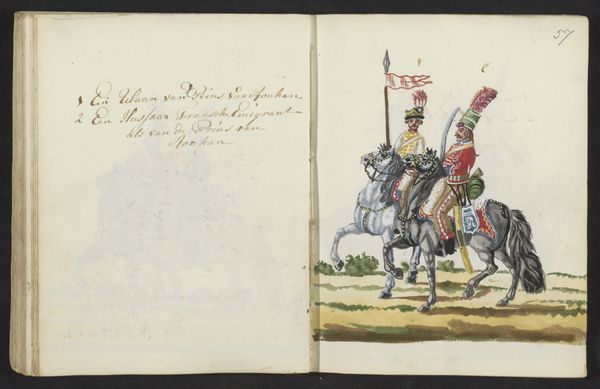 1 Ein Ulaan van Prins van Rouhan
2 En Hussaar Fransche Emigrant
als van de Prins van
Rouhan
57
1 2